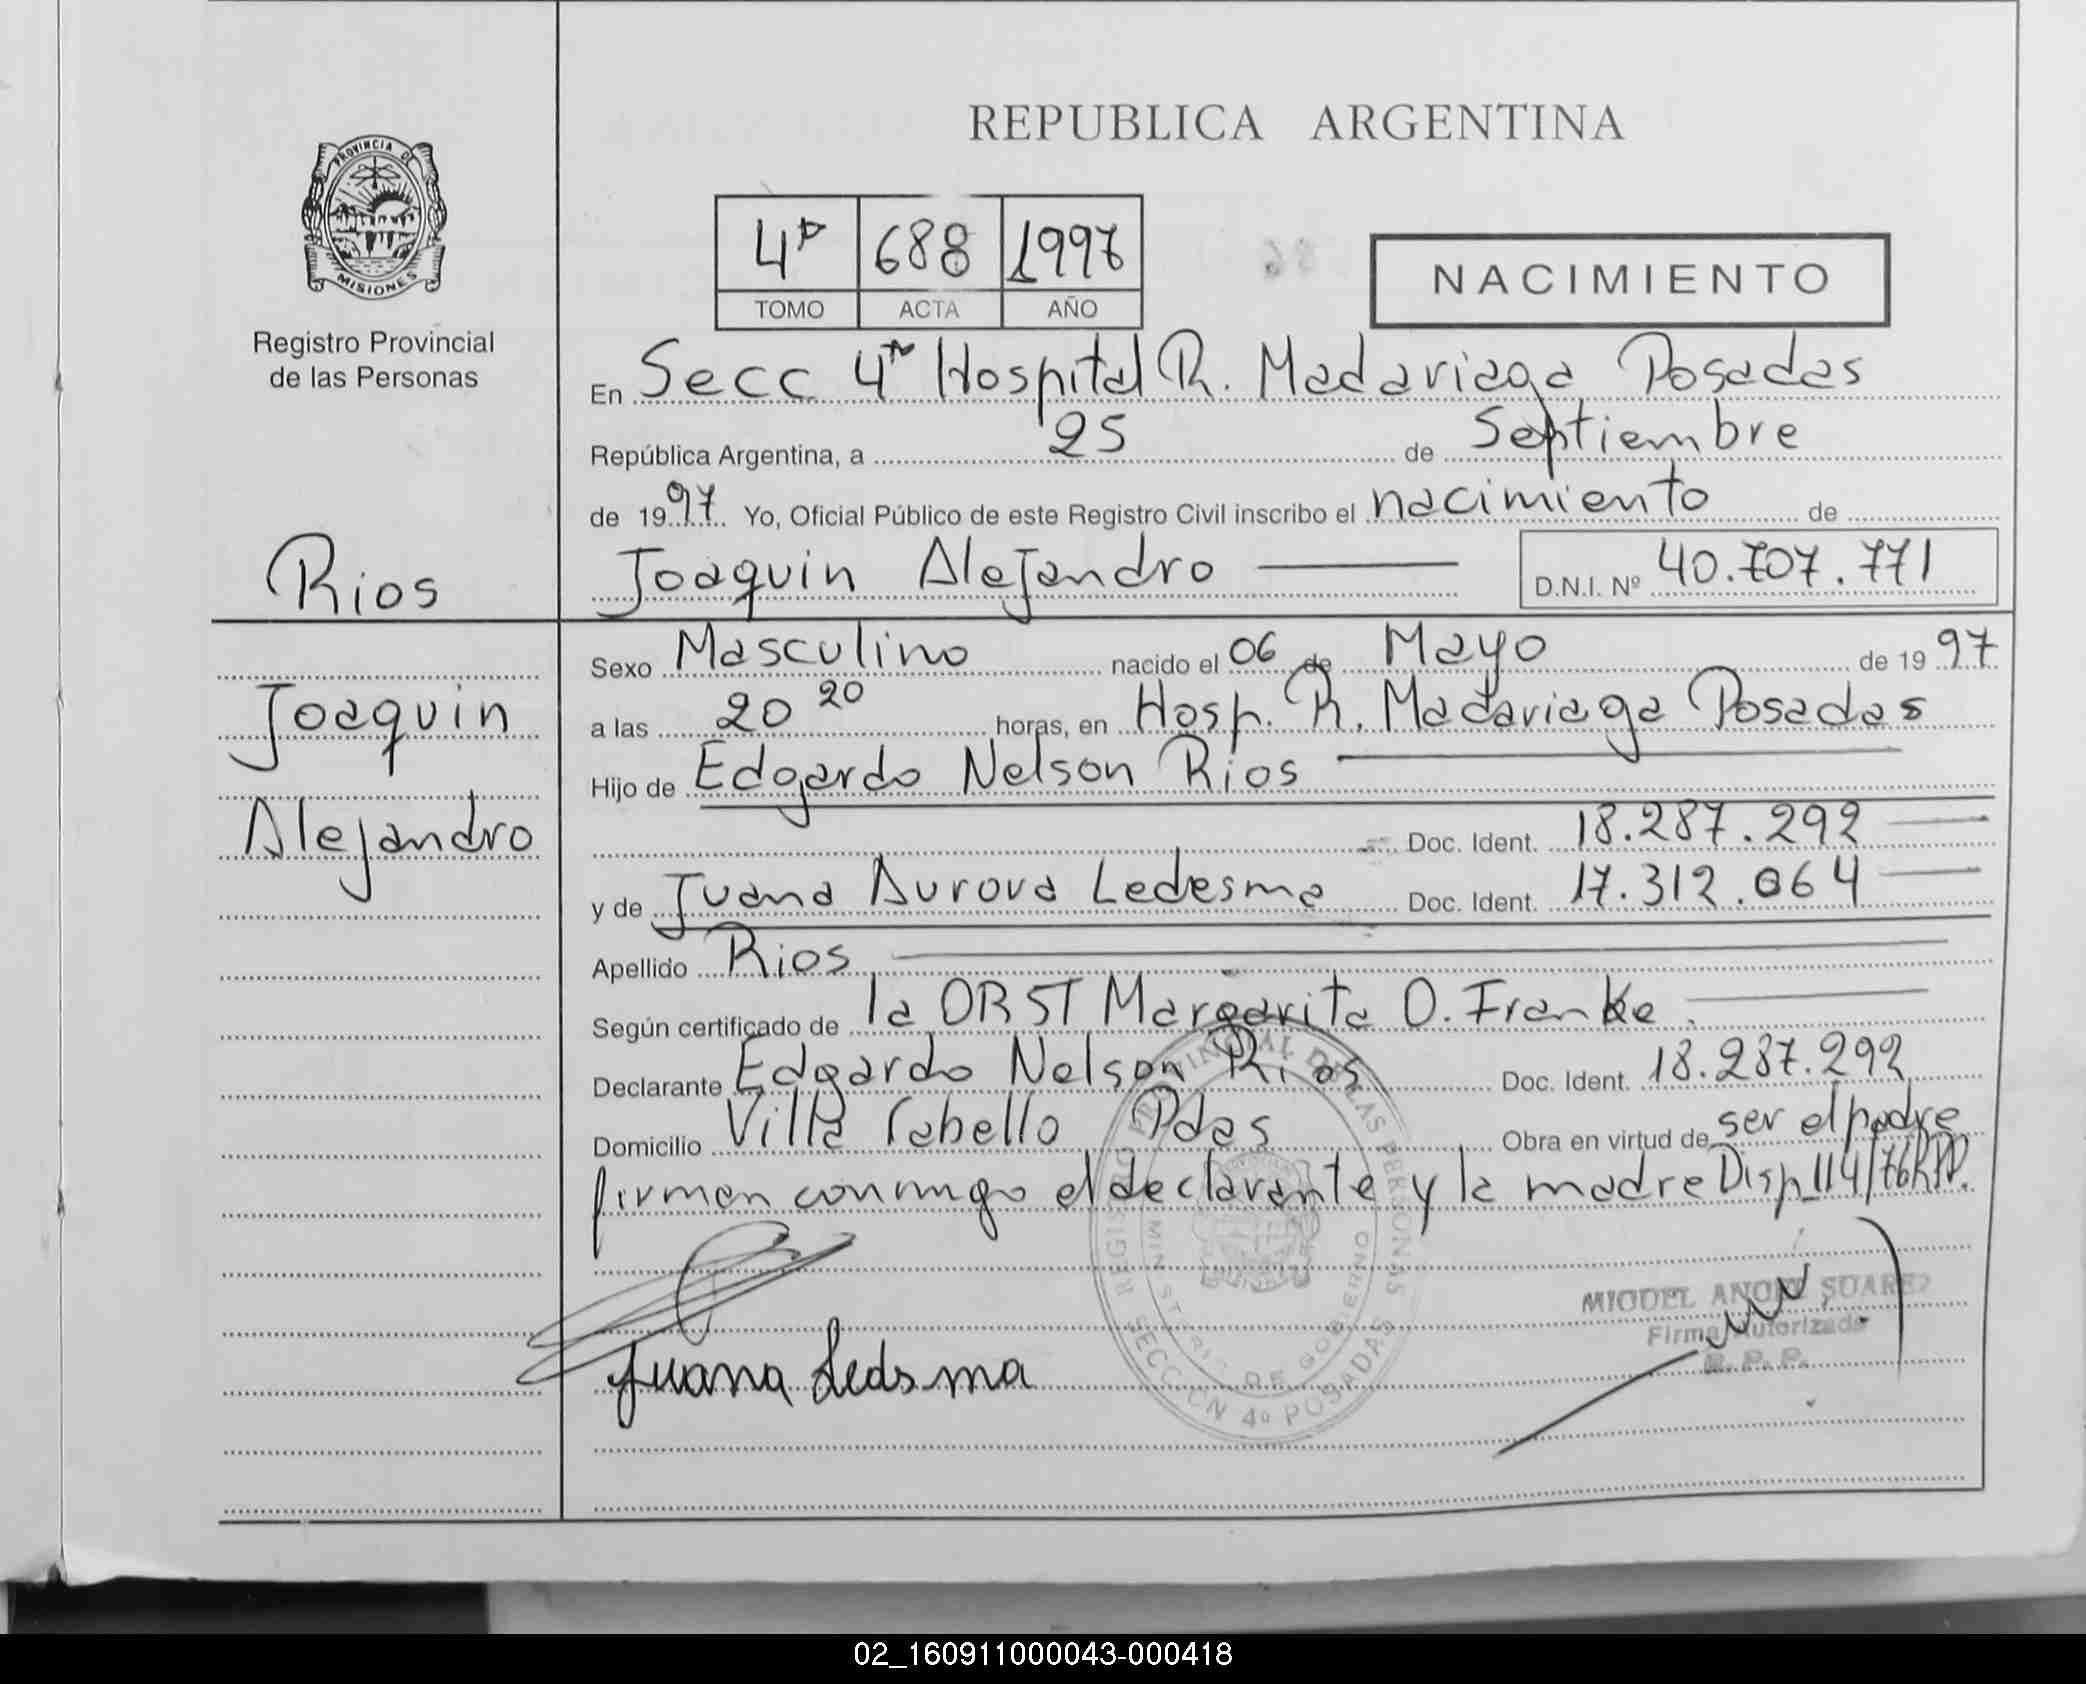 PROVINCIA DE
MISIONES
Registro Provincial
de las Personas
REPUBLICA ARGENTINA
4ta 688 1997
TOMO ACTA AÑO
NACIMIENTO
En Secc 4ta Hospital R. Madariaga Posadas
República Argentina, a 25 de Septiembre
de 1997. Yo, Oficial Público de este Registro Civil inscribo el nacimiento de
Rios
Joaquin Alejandro
D.N.I. Nº 40.707.771
Sexo Masculino nacido el 06 de Mayo de 1997
Joaquin
a las 20 20 horas, en Hosp. R. Madariaga Posadas
Hijo de Edgardo Nelson Rios
Alejandro
Doc. Ident. 18.287.292
y de Juana Aurora Ledesma Doc. Ident. 17.312.064
Apellido Rios
Según certificado de la OBST Margarita O. Franke.
Declarante Edgardo Nelson Rios Doc. Ident. 18.287.292
Domicilio Villa Cabello Pdas Obra en virtud de ser el padre
firman conmigo el declarante y la madre Disp 114/76
REGISTRO PROVINCIAL DE LAS PERSONAS
MINISTERIO DE GOBIERNO
SECCION 4º POSADAS
MIGUEL ANGEL SUAREZ
Firma Autorizada
R. P. P.
Juana Ledsma
02_160911000043-000418